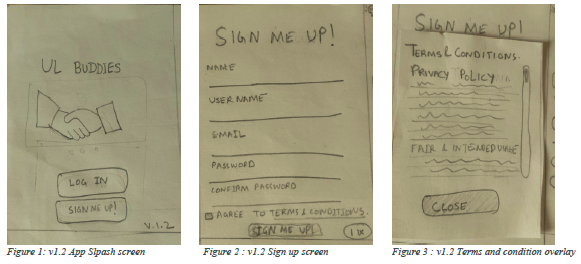 UL BUDDIES
LOG IN
SIGN ME UP!
V.1.2
Figure 1: v1.2 App Slpash screen
SIGN ME UP!
NAME
USER NAME
EMAIL
PASSWORD
CONFIRM PASSWORD
AGREE TO TERMS & CONDITIONS.
SIGN ME UP!
Figure 2 : v1.2 Sign up screen
SIGN ME UP!
TERMS & CONDITIONS.
PRIVACY POLICY
FAIR & INTENDED USAGE
CLOSE
Figure 3 : v1.2 Terms and condition overlay